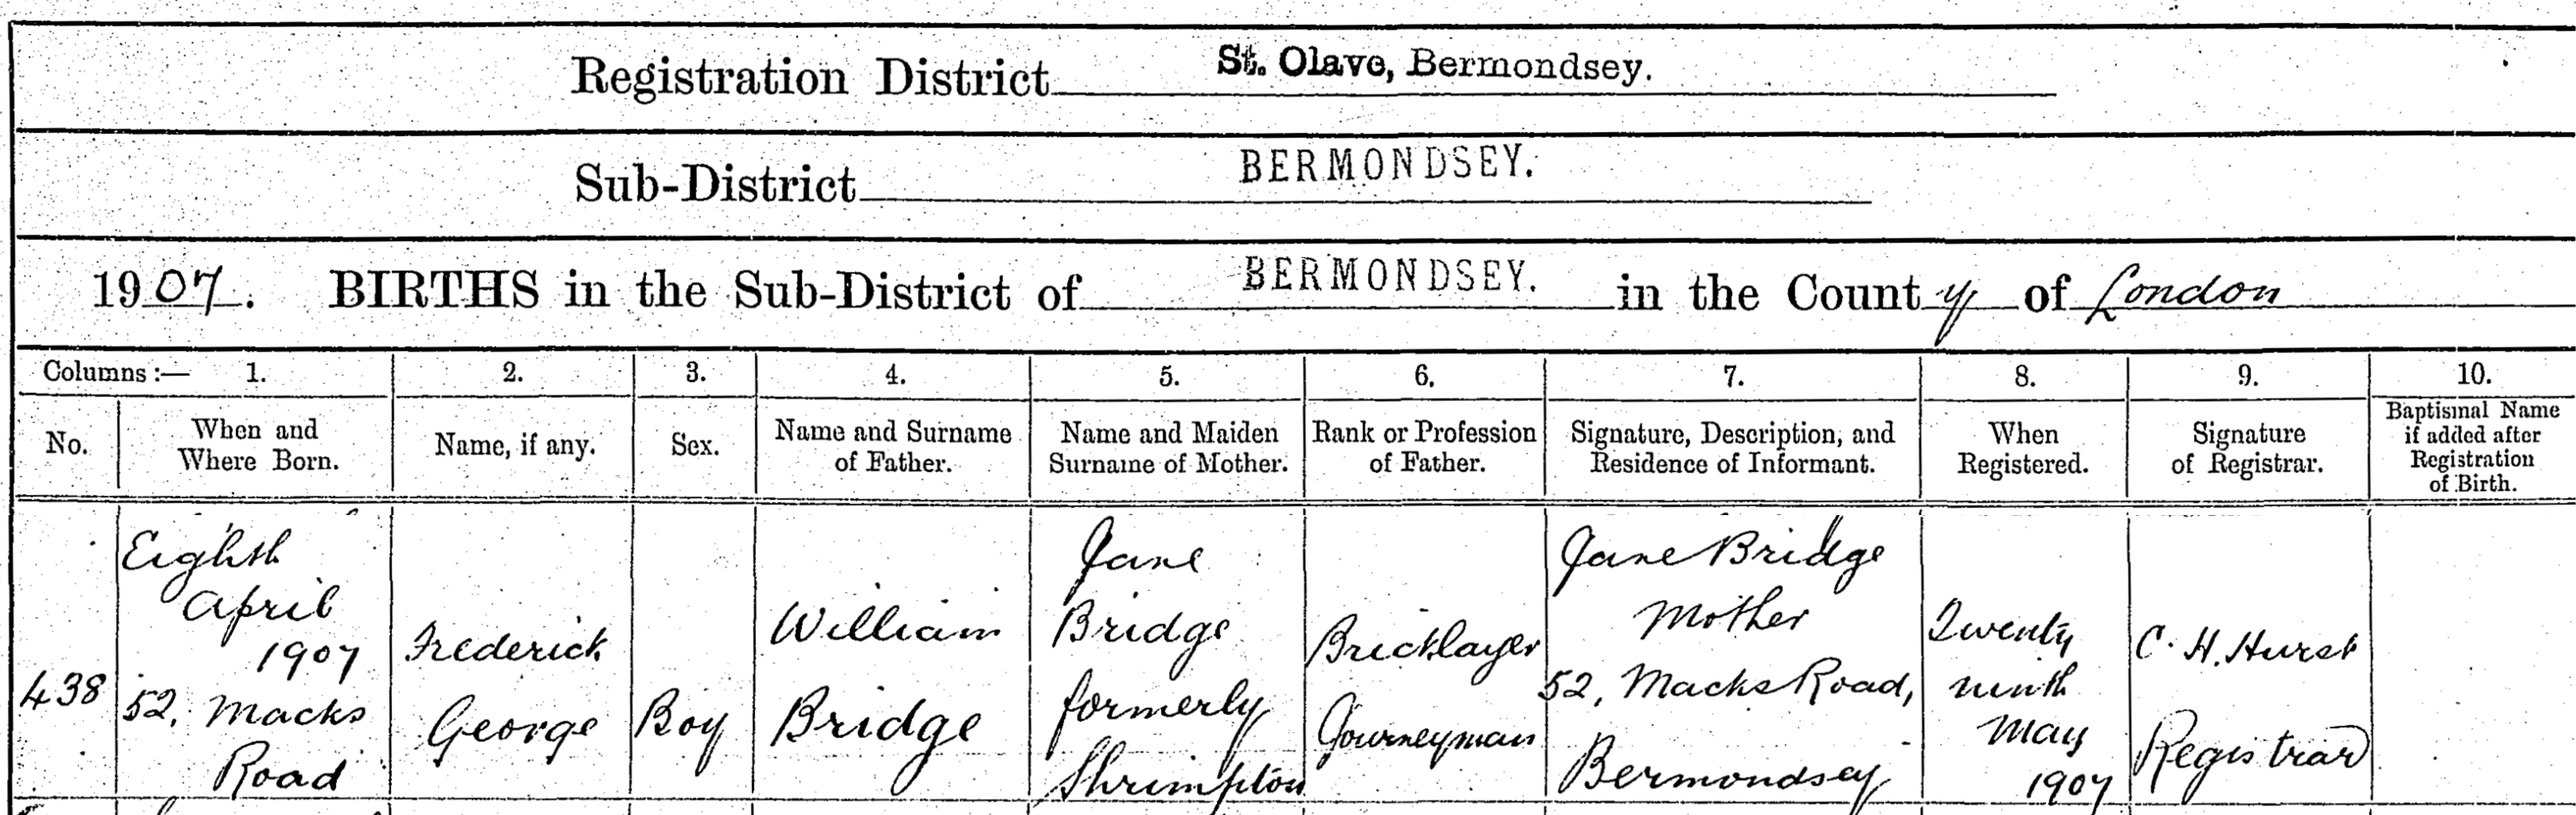 Registration District St. Olave, Bermondsey.
Sub-District BERMONDSEY.
1907. BIRTHS in the Sub-District of BERMONDSEY. in the County of London
Columns :— 1. 2. 3. 4. 5. 6. 7. 8. 9. 10.
No.
When and
Where Born.
Name, if any.
Sex.
Name and Surname
of Father.
Name and Maiden
Surname of Mother.
Rank or Profession
of Father.
Signature, Description, and
Residence of Informant.
When
Registered.
Signature
of Registrar.
Baptismal Name
if added after
Registration
of Birth.
438
Eighth
April
1907
52, Macks
Road
Frederick
George
Boy
William
Bridge
Jane
Bridge
formerly
Shrimpton
Bricklayer
Journeyman
Jane Bridge
Mother
52, Macks Road,
Bermondsey
Twenty
ninth
May
1907
C. H. Hurst
Registrar